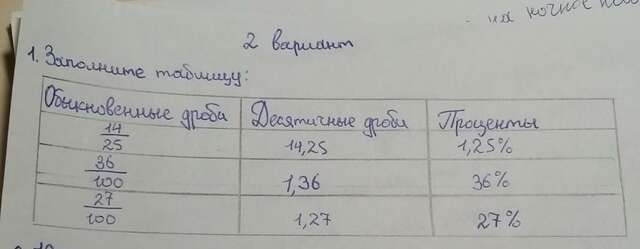 на ночное
2 вариант
1. Заполните таблицу:
Обыкновенные дроби Десятичные дроби Проценты
14/25 14,25 1,25%
36/100 1,36 36%
27/100 1,27 27%